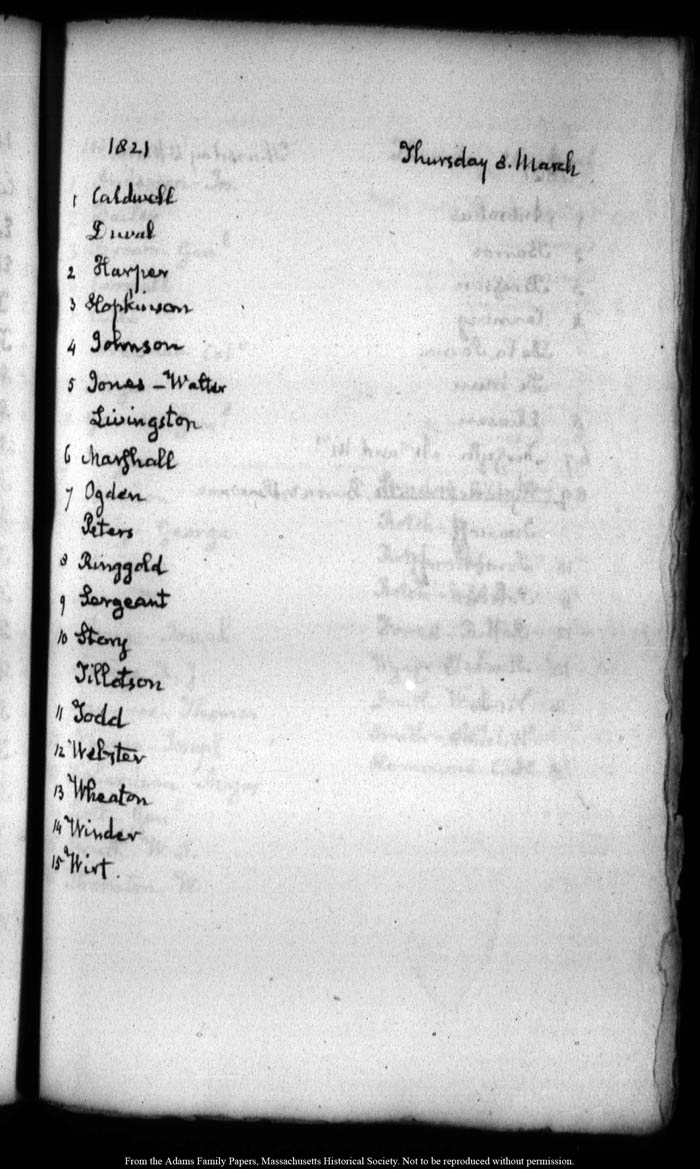 1821 Thursday 8. March
1 Caldwell
Duval
2 Harper
3 Hopkinson
4 Johnson
5 Jones - Walter
Livingston
6 Marshall
7 Ogden
Peters
8 Ringgold
9 Sergeant
10 Story
Tillotson
11 Todd
12 Webster
13 Wheaton
14 Winder
15 Wirt.
From the Adams Family Papers, Massachusetts Historical Society. Not to be reproduced without permission.